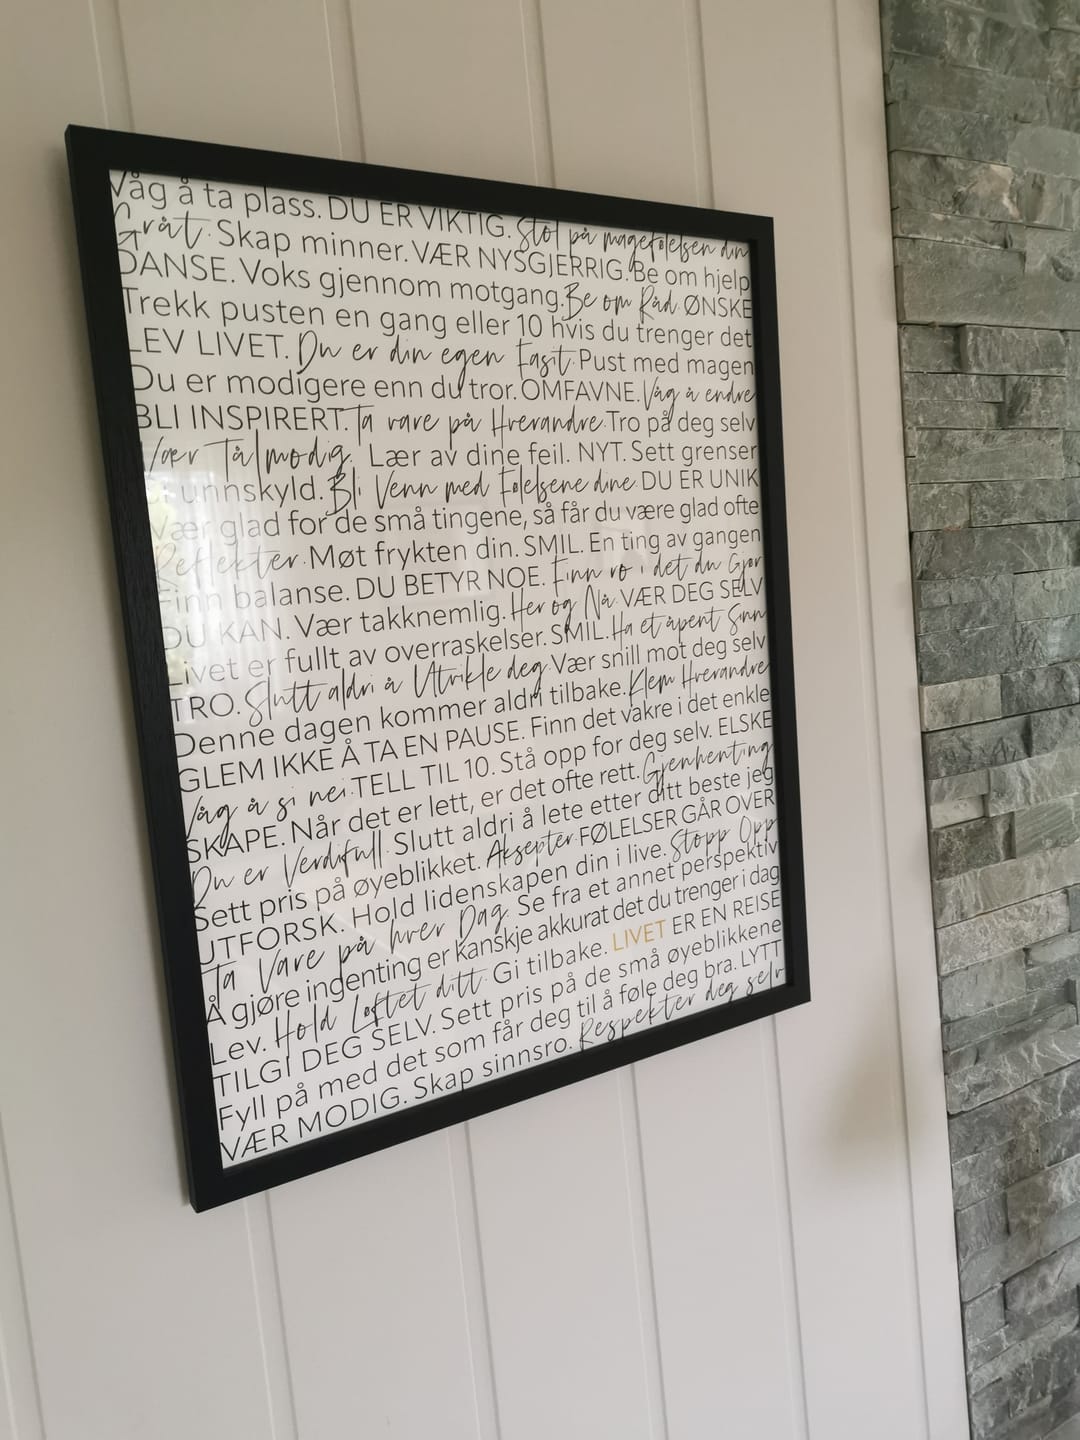 Våg å ta plass. DU ER VIKTIG. Stol på magefølelsen din
Gråt. Skap minner. VÆR NYSGJERRIG. Be om hjelp
DANSE. Voks gjennom motgang. Be om Råd. ØNSKE
Trekk pusten en gang eller 10 hvis du trenger det
LEV LIVET. Du er din egen Fasit. Pust med magen
Du er modigere enn du tror. OMFAVNE. Våg å endre
BLI INSPIRERT. Ta vare på Hverandre. Tro på deg selv
Vær Tålmodig. Lær av dine feil. NYT. Sett grenser
unnskyld. Bli Venn med Følelsene dine. DU ER UNIK
Vær glad for de små tingene, så får du være glad ofte
Reflekter. Møt frykten din. SMIL. En ting av gangen
Finn balanse. DU BETYR NOE. Finn ro i det du Gjør
DU KAN. Vær takknemlig. Her og Nå. VÆR DEG SELV
Livet er fullt av overraskelser. SMIL. Ha et åpent Sinn
TRO. Slutt aldri å Utvikle deg. Vær snill mot deg selv
Denne dagen kommer aldri tilbake. Klem Hverandre
GLEM IKKE Å TA EN PAUSE. Finn det vakre i det enkle
Våg å si nei. TELL TIL 10. Stå opp for deg selv. ELSKE
SKAPE. Når det er lett, er det ofte rett. Gjenhenting
Du er Verdifull. Slutt aldri å lete etter ditt beste jeg
Sett pris på øyeblikket. Aksepter. FØLELSER GÅR OVER
UTFORSK. Hold lidenskapen din i live. Stopp Opp
Ta Vare på hver Dag. Se fra et annet perspektiv
Å gjøre ingenting er kanskje akkurat det du trenger i dag
Lev. Hold Løftet ditt. Gi tilbake. LIVET ER EN REISE
TILGI DEG SELV. Sett pris på de små øyeblikkene
Fyll på med det som får deg til å føle deg bra. LYTT
VÆR MODIG. Skap sinnsro. Respekter deg selv